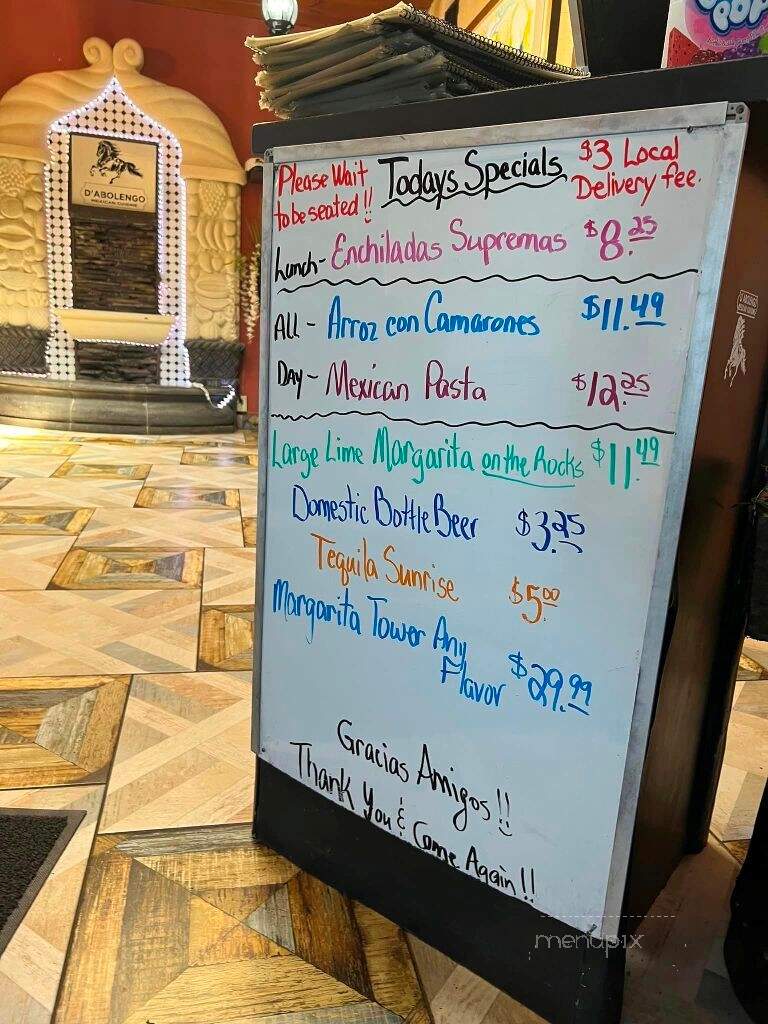 D'ABOLENGO
MEXICAN CUISINE
POP
Please Wait
to be seated!!
Todays Specials
$3 Local
Delivery fee.
Lunch - Enchiladas Supremas $8.25
All - Arroz con Camarones $11.49
Day - Mexican Pasta $12.25
Large Lime Margarita on the Rocks $11.49
Domestic Bottle Beer $3.25
Tequila Sunrise $5.00
Margarita Tower Any
Flavor $29.99
Gracias Amigos!!
Thank You & Come Again!!
D'ABOLENGO
menupix